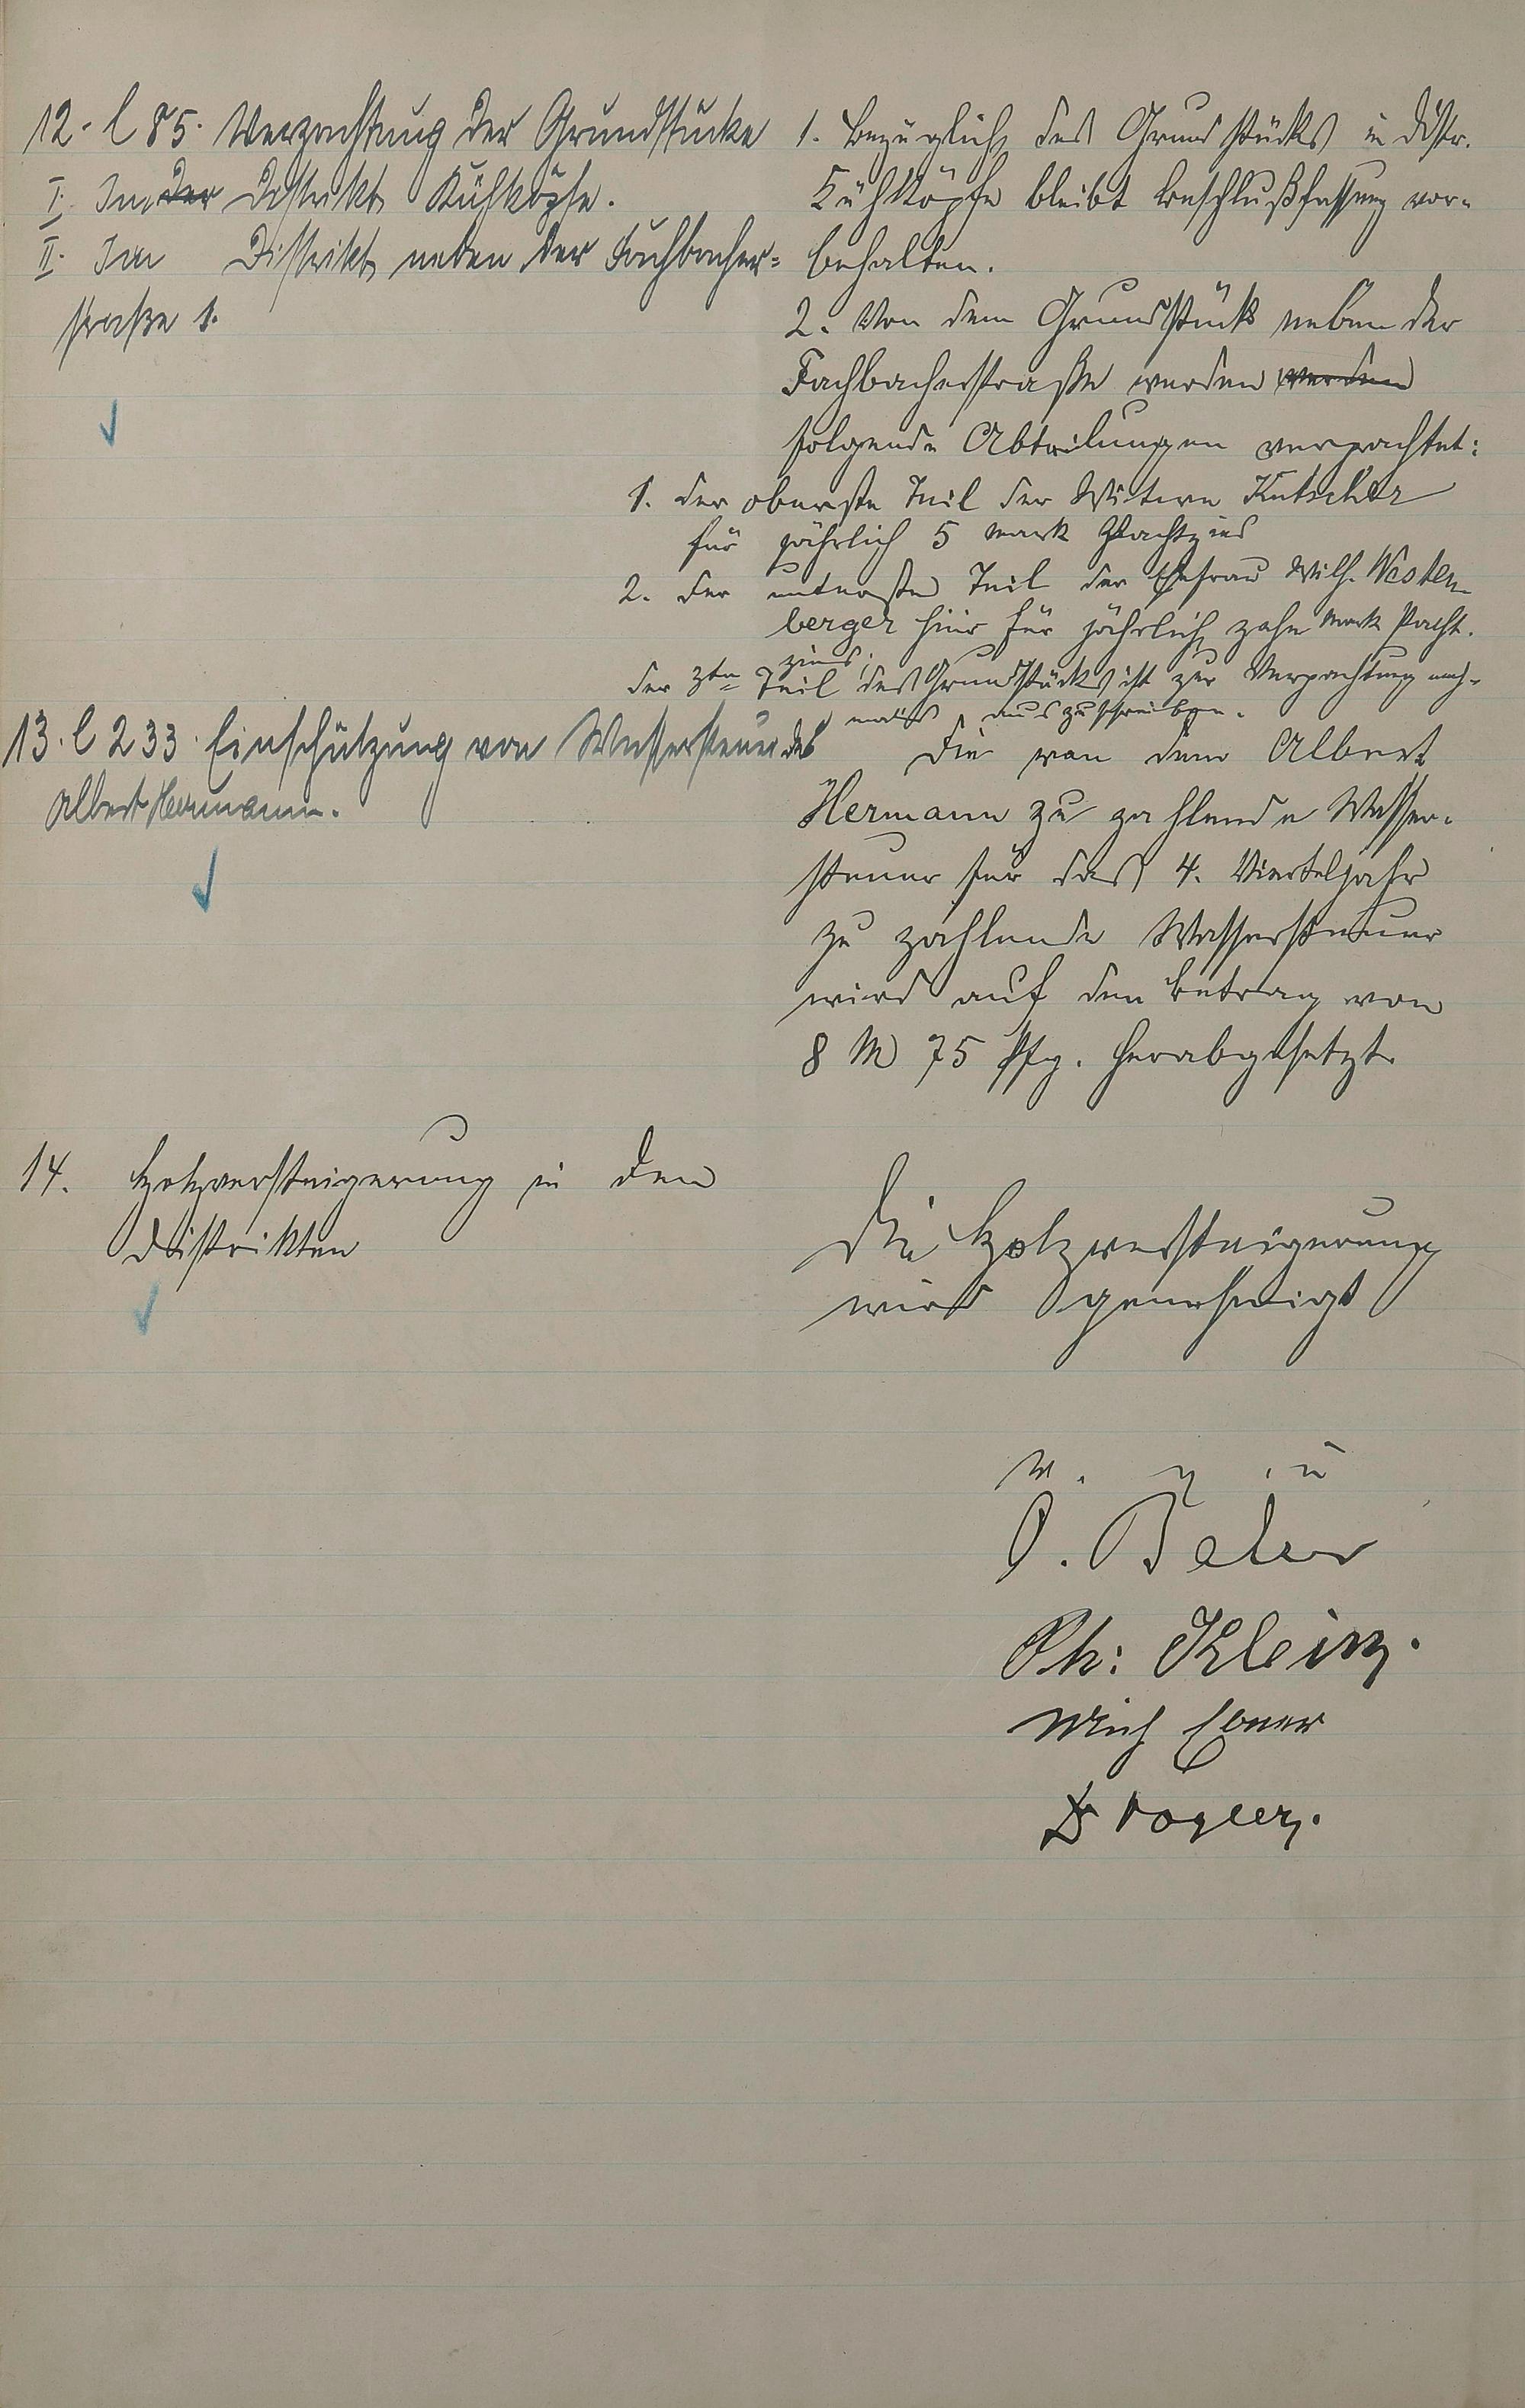 12. l 85. Verpachtung der Grundstücke
I. Im der Distrikt Kühköpfe.
II. Im Distrikt neben der Fachbacher-
straße 1.
1. Bezüglich des Grundstücks in Distr.
Kühköpfe bleibt Beschlußfassung vor-
behalten.
2. Von dem Grundstück neben der
Fachbacherstraße werden werden
folgende Abteilungen verpachtet:
1. der oberste Teil der Witwe Kutscher
für jährlich 5 Mark Pachtzins
2. der unterste Teil der Ehefrau Wilh. Westen-
berger hier für jährlich zehn Mark Pacht-
zins;
der 3te Teil des Grundstücks ist zur Verpachtung noch-
mals auszuschreiben.
13. l 233. Einschätzung von Wassersteuer des
Albert Hermann.
Die von dem Albert
Hermann zu zahlende Wasser-
steuer für das 4. Vierteljahr
zu zahlende Wassersteuer
wird auf den Betrag von
8 M 75 Pfg. herabgesetzt.
14. Holzversteigerung in den
Distrikten
Die Holzversteigerung
wird genehmigt
v. g. u
Ph: Klein.
Mich Ebner